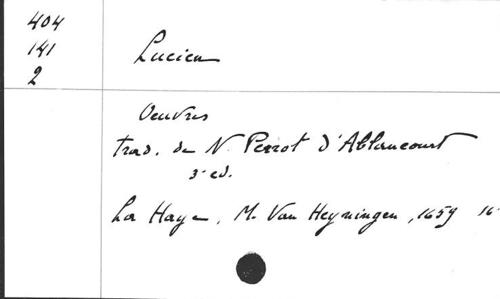 404
141
2
Lucien
Oeuvres
trad. de N. Perrot d'Ablancourt
3e ed.
La Haye, M. Van Heyningen, 1659 16